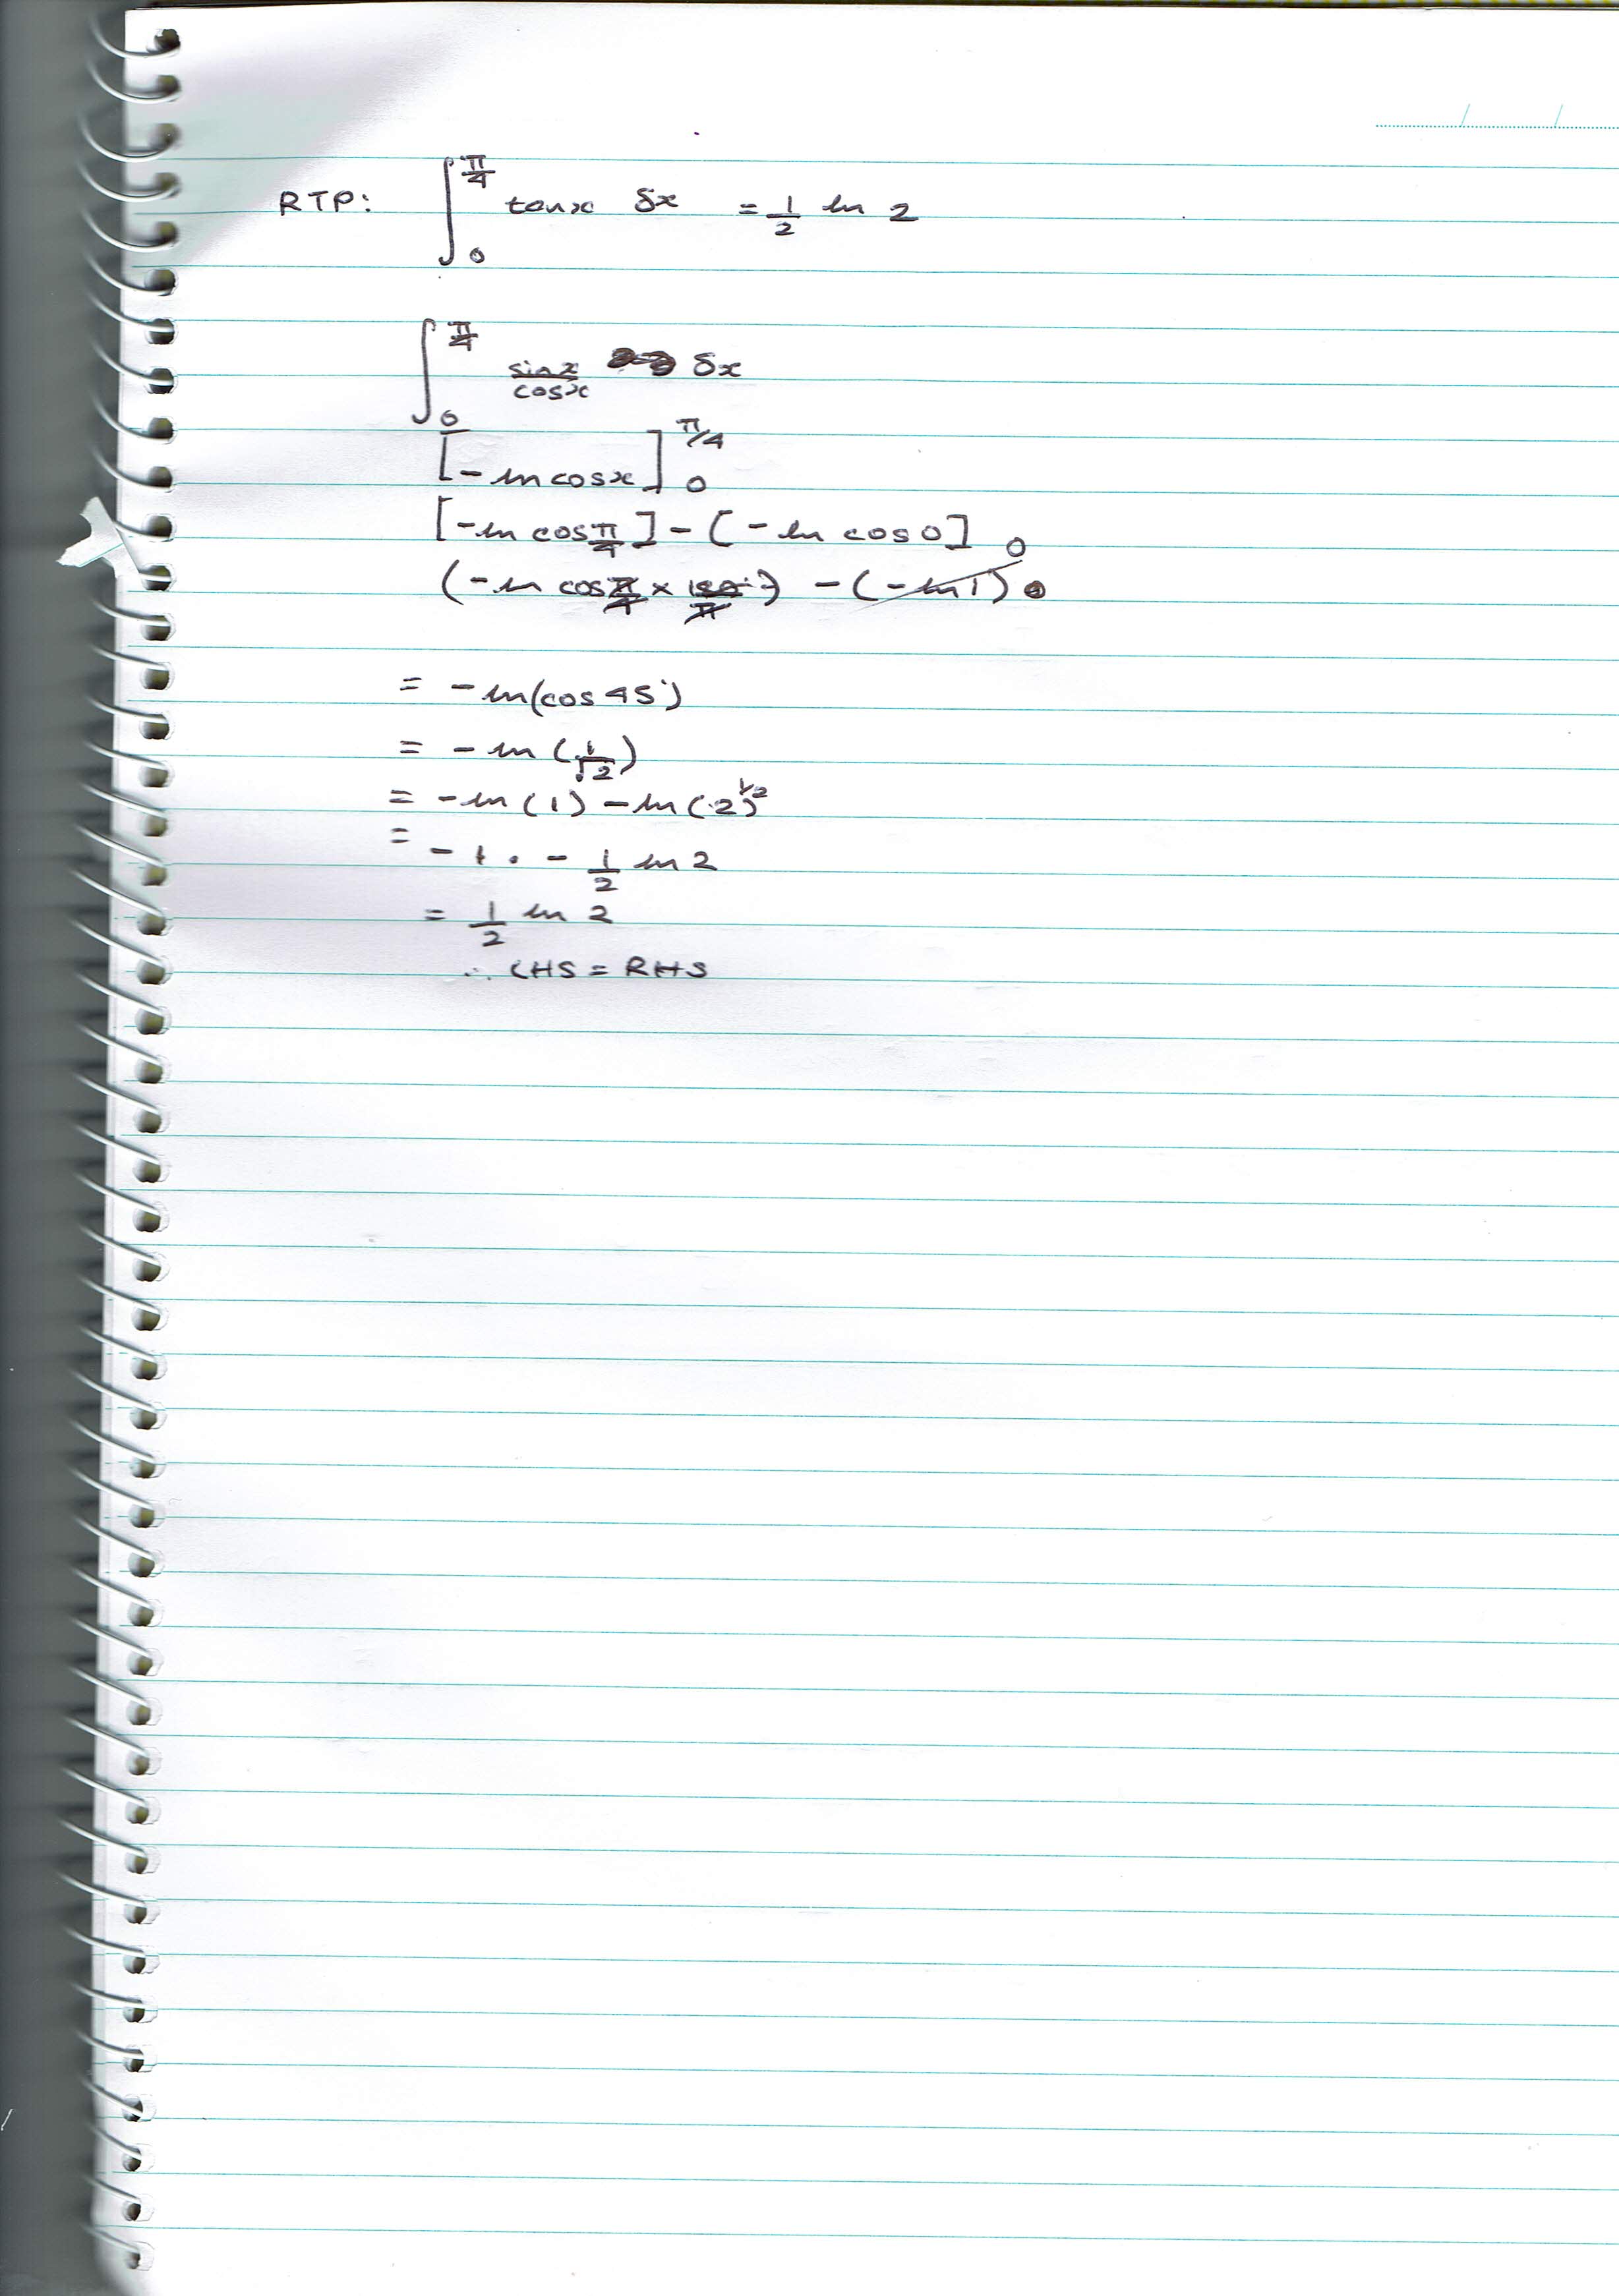 RTP: ∫₀^{π/4} tanx δx = 1/2 ln 2
∫₀^{π/4} sinx/cosx δx
[-ln cosx]₀^{π/4}
[-ln cos π/4] - [-ln cos 0]
(-ln cos π/4 × 180°/π) - (-ln 1) 0
= -ln(cos 45°)
= -ln (1/√2)
= -ln (1) - ln (2)^{1/2}
= -1 · - 1/2 ln 2
= 1/2 ln 2
∴ LHS = RHS